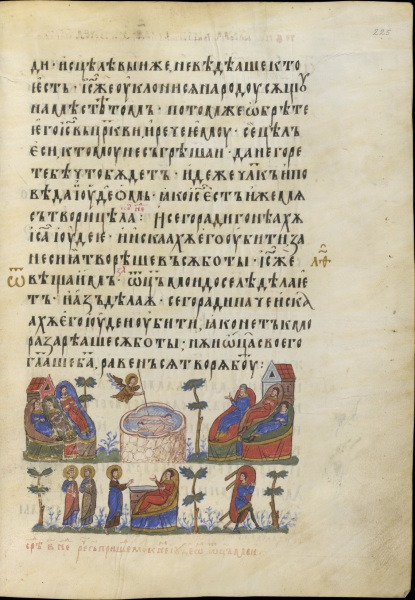 225
ди · исцѣлѣвыиже, невѣдѣашекто
естъ · іс҃жеоуклонисѧнародоусѫщоу
намѣстѣтомь · потомжеѡбрѣте
иегоіс҃въцр҃кви, иречеемоу · сецѣлъ
есиктомоунесъгрѣшаи · данегоре
тебѣчтобѫдетъ · идежечл҃къипо
вѣдаіоудеѡмь · ꙗкоіс҃естъижемѧ
сътворицѣла : исегорадигонѣахѫ
іс҃аіоудее · иискаахѫегооубитиза
несиатворѣшевъсѫботы · іс҃же
ѿ вѣщаимъ · ѿц҃ьмоидоселѣдѣлае
тъ · иазъдѣлаѫ · сегорадипачеиска
ахѫегоіоудеиоубити, ꙗконетъкмо
разарѣшесѫботы · нѫиѿц҃асвоего
гл҃ашеба҃, равенъсѧтворѧбоу҃ :